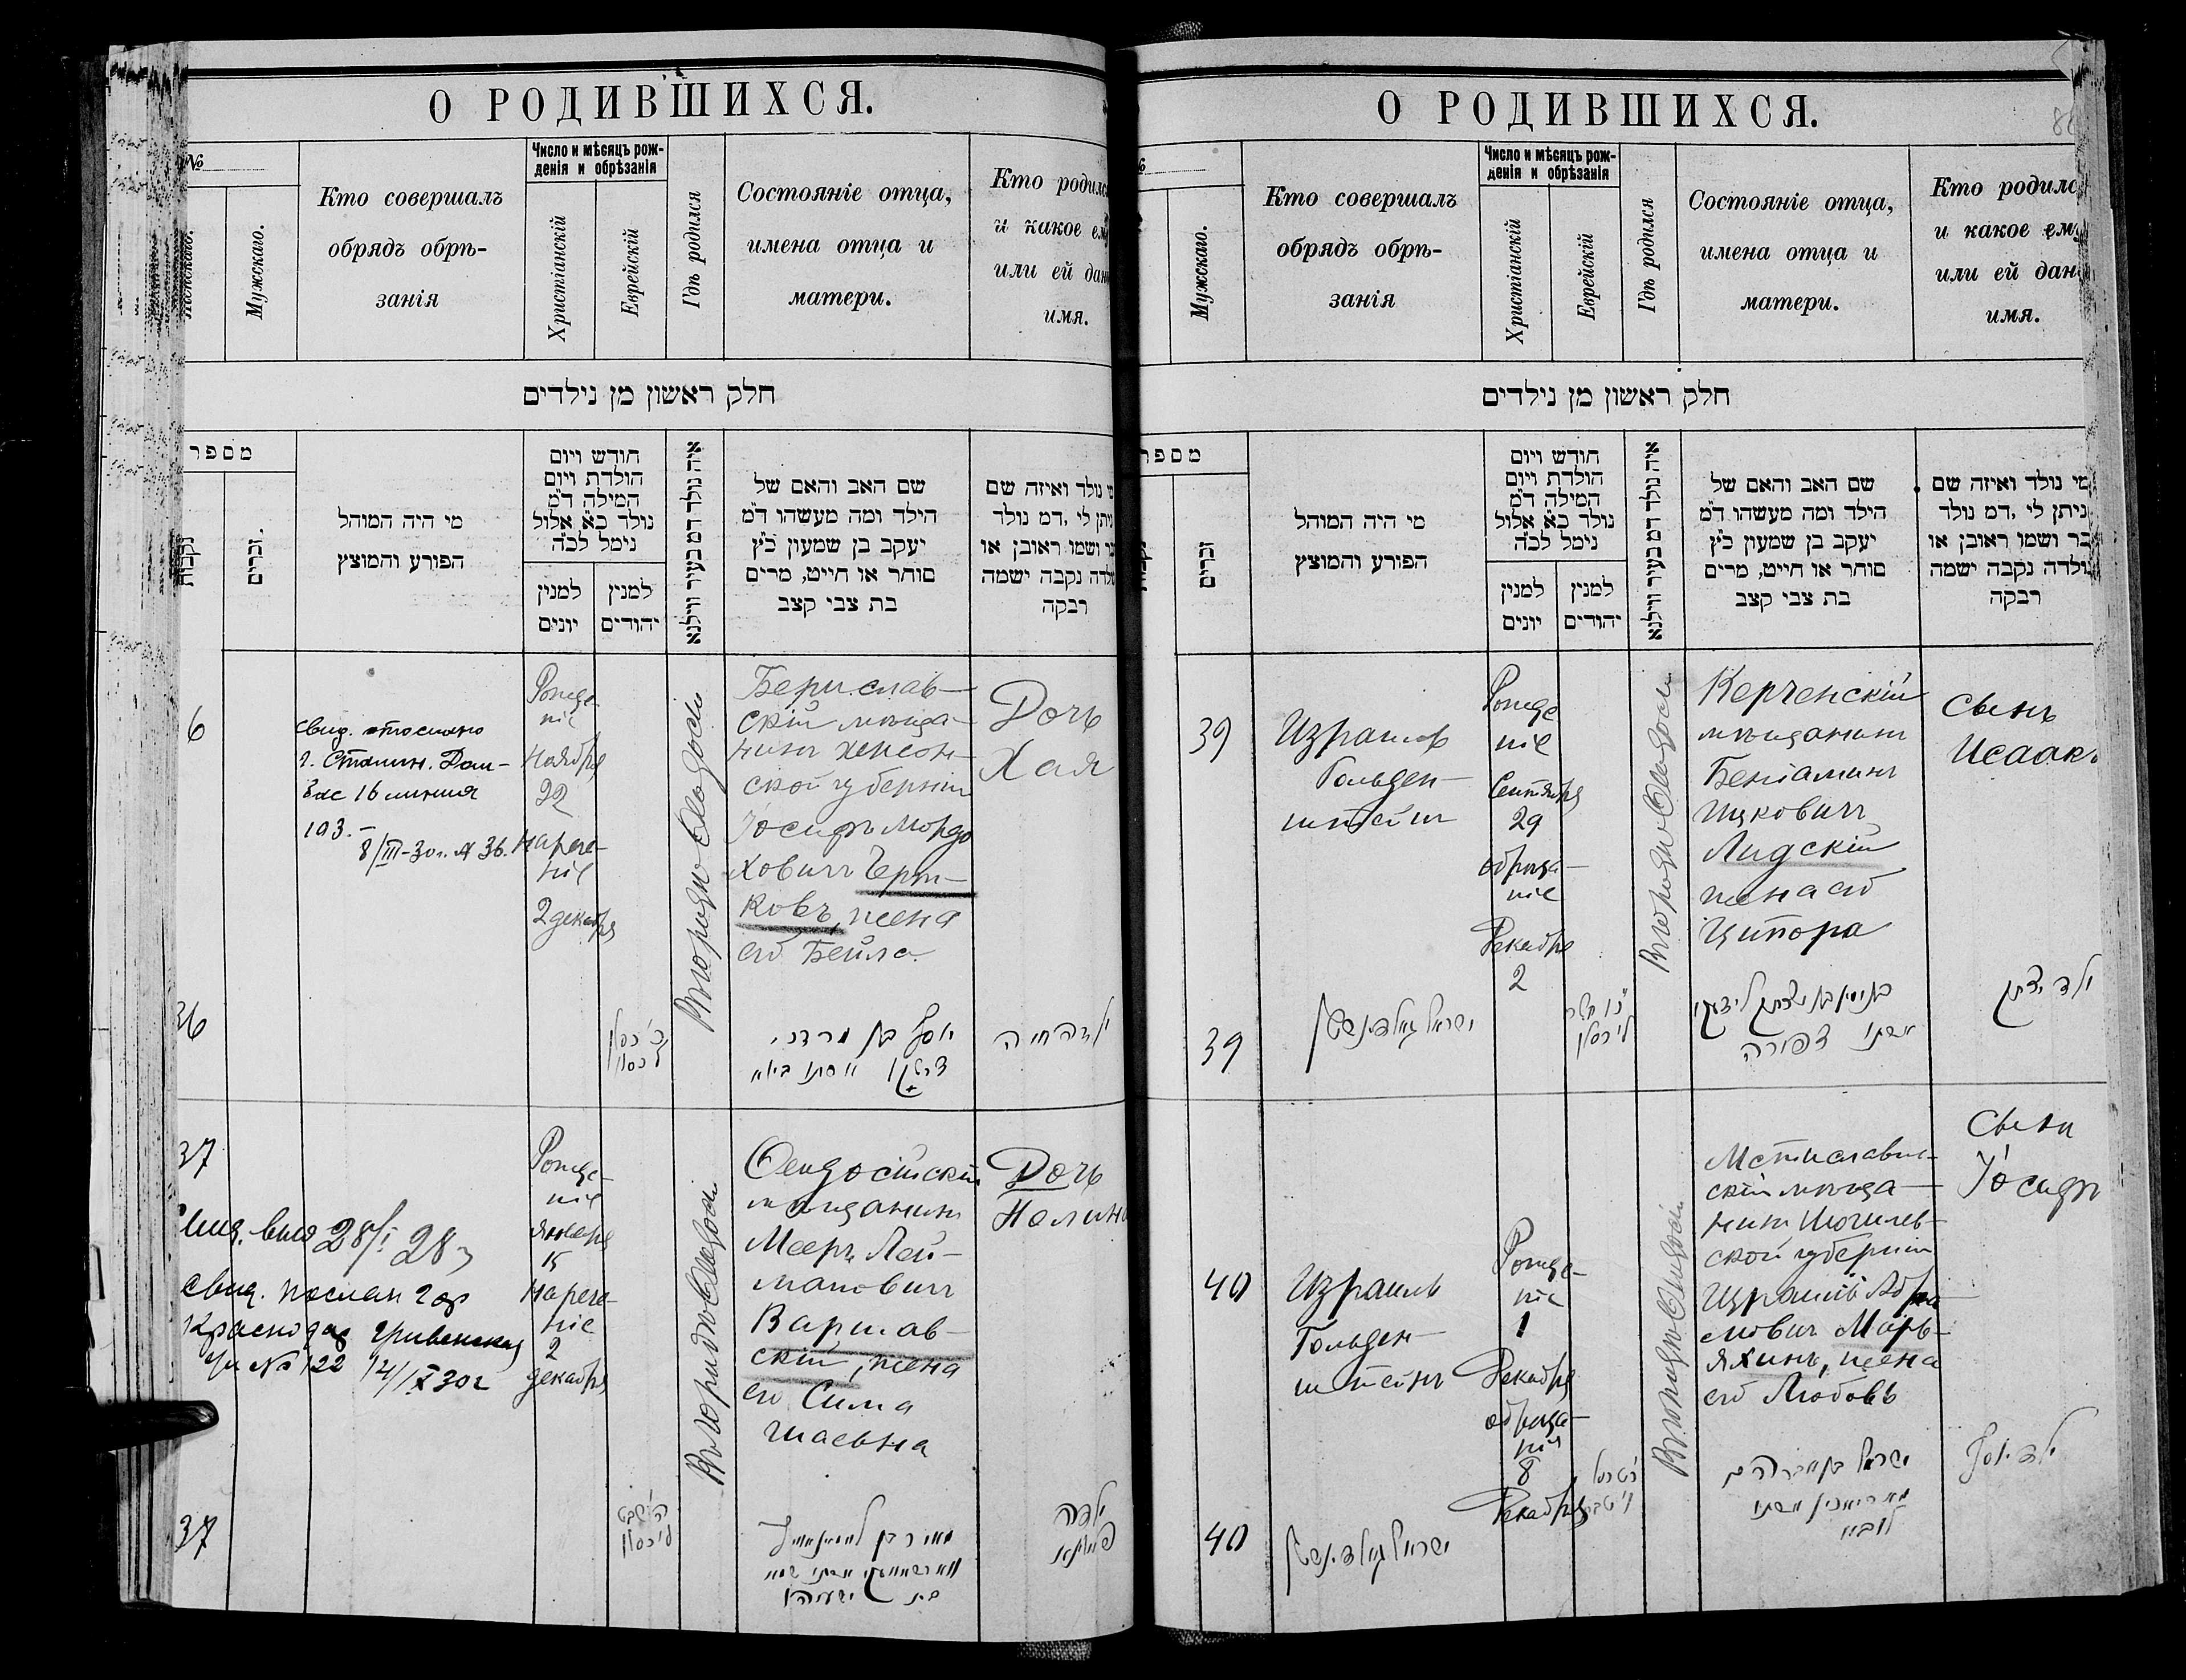 О РОДИВШИХСЯ.
№
Женскаго.
Мужскаго.
Кто совершалъ
обрядъ обрѣ-
занія
Число и мѣсяцъ рож-
денія и обрѣзанія
Христіанскій
Еврейскій
Гдѣ родился
Состояніе отца,
имена отца и
матери.
Кто родился
и какое ему
или ей дано
имя.
חלק ראשון מן נילדים
מספר
נקבות
זכרים.
מי היה המוהל
הפורע והמוצץ
חודש ויום
הולדת ויום
המילה ד״מ
נולד כ״א אלול
נימל לכ״ה
למנין
יונים
למנין
יהודים
איה נולד דמ בעיר ווילנא
שם האב והאם של
הילד ומה מעשהו ד״מ
יעקב בן שמעון כ״ץ
סוחר או חייט, מרים
בת צבי קצב
מי נולד ואיזה שם
ניתן לי, דמ נולד
בר ושמו ראובן או
נולדה נקבה ישמה
רבקה
6
г. Сталин.
16 линия
193.–
8/III–30г. № 36.
Рожде-
ніе
Ноября
22
Нарече-
ніе
2 декабря
Въ городѣ Ѳеодосіи
Берислав-
скій мѣща-
нинъ Херсон-
ской губерніи
Іосифъ Мордо
ховичъ Черт-
ковъ, жена
его Бейла.
Дочь
Хая
36
יוסף בן מרדכי
ילדה חיה
37
28/I 28г
Свид. послан гор
Краснодар
Ул № 122 14/IX 30г
Рожде-
ніе
Января
15
Нарече-
ніе
2
декабря
Въ городѣ Ѳеодосіи
Ѳеодосійскій
мѣщанинъ
Мееръ Лей-
мановичъ
Варшав-
скій, жена
его Сима
Шаевна
Дочь
37
ילדה
О РОДИВШИХСЯ.
№
Мужскаго.
Кто совершалъ
обрядъ обрѣ-
занія
Число и мѣсяцъ рож-
денія и обрѣзанія
Христіанскій
Еврейскій
Гдѣ родился
Состояніе отца,
имена отца и
матери.
Кто родился
и какое ему
или ей дано
имя.
חלק ראשון מן נילדים
מספר
נקבות
זכרים
מי היה המוהל
הפורע והמוצץ
חודש ויום
הולדת ויום
המילה ד״מ
נולד כ״א אלול
נימל לכ״ה
למנין
יונים
למנין
יהודים
איה נולד דמ בעיר ווילנא
שם האב והאם של
הילד ומה מעשהו ד״מ
יעקב בן שמעון כ״ץ
סוחר או חייט, מרים
בת צבי קצב
מי נולד ואיזה שם
ניתן לי, דמ נולד
בר ושמו ראובן או
נולדה נקבה ישמה
רבקה
39
Израиль
Гольден-
штейнъ
Рожде
ніе
Сентября
29
обрѣза-
ніе
Декабря
2
Въ городѣ Ѳеодосіи
Керченскій
мѣщанинъ
Беніаминъ
Ицковичъ
Лидскій
жена его
Ципора
Сынъ
Исаакъ
39
ישראל גאלדינשטיין
אשתו צפורה
ילד יצחק
40
Израиль
Гольден-
штейнъ
Рожде-
ніе
1
Декабря
обрѣза-
ніе
8
Декабря
Въ городѣ Ѳеодосіи
Мстиславль-
скій мѣща-
нинъ Могилев-
ской губерніи
Израиль Абра
мовичъ Марь-
яхинъ, жена
его Любовь
Сынъ
Іосифъ
40
ישראל גאלדינשטיין
ישראל בן אברהם
מאריאכין אשתו
ליבא
ילד יוסף